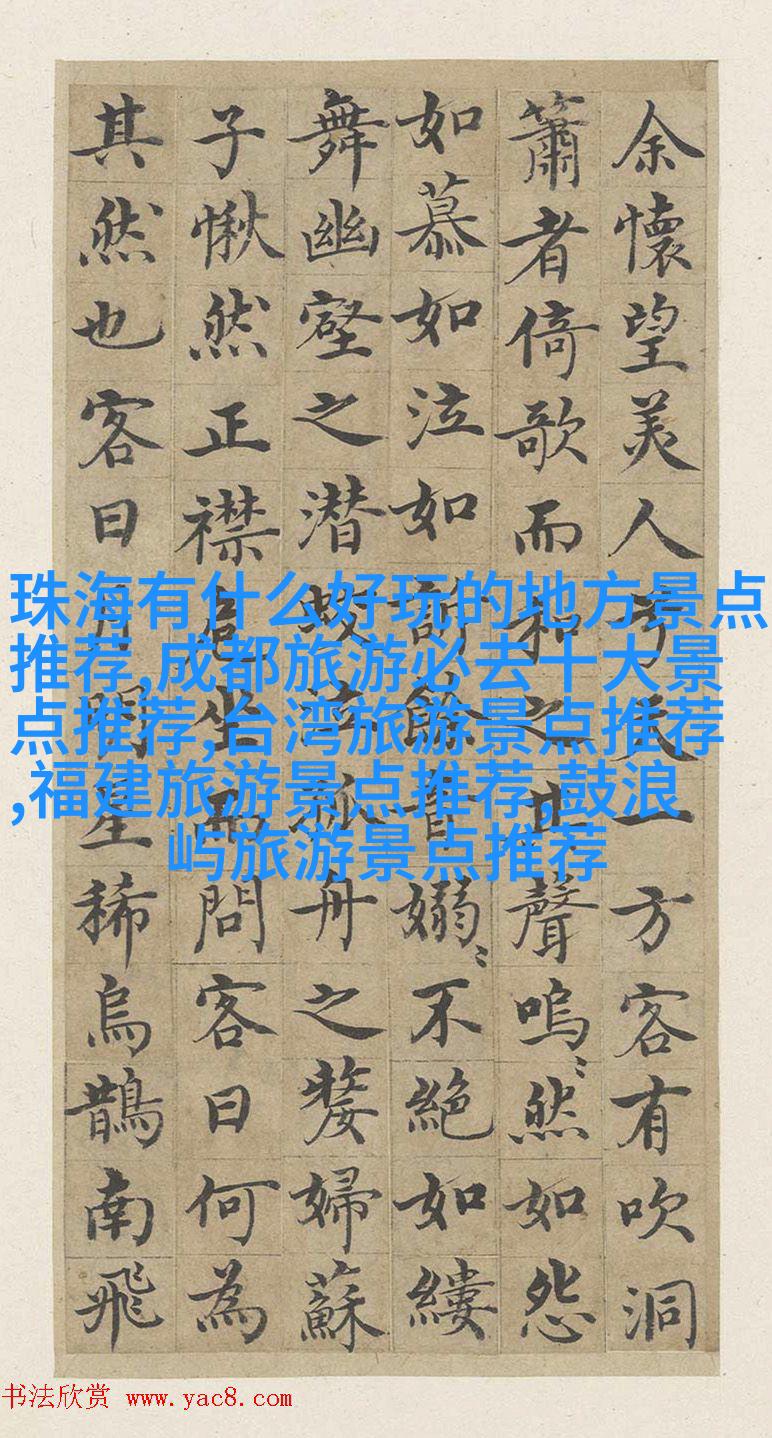 余懷望美人兮天一方客有吹洞
簫者倚歌而和之其聲嗚〻然如怨
如慕如泣如訴餘音嫋〻不絕如縷
舞幽壑之潜蛟泣孤舟之嫠婦蘇
子愀然正襟危坐而問客曰何為
其然也客曰月明星稀烏鵲南飛
珠海有什么好玩的地方景点
推荐,成都旅游必去十大景
点推荐,台湾旅游景点推荐
,福建旅游景点推荐,鼓浪
屿旅游景点推荐
书法欣赏 www.yac8.com